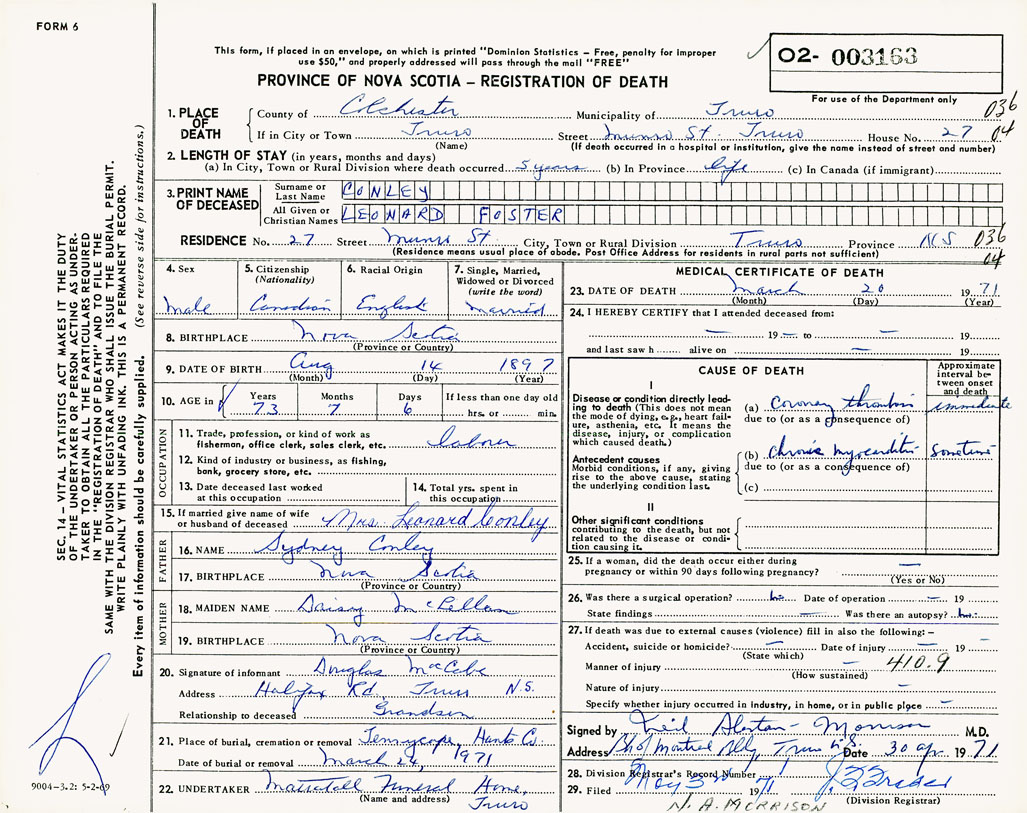 FORM 6
This form, if placed in an envelope, on which is printed "Dominion Statistics – Free, penalty for improper
use $50," and properly addressed will pass through the mail "FREE"
PROVINCE OF NOVA SCOTIA – REGISTRATION OF DEATH
O2- 003163
For use of the Department only
036
04
1. PLACE OF DEATH
County of Colchester Municipality of Truro
If in City or Town Truro Street Munro St. Truro House No. 27
(Name) (If death occurred in a hospital or institution, give the name instead of street and number)
2. LENGTH OF STAY (in years, months and days)
(a) In City, Town or Rural Division where death occurred 5 years (b) In Province life (c) In Canada (if immigrant)
3. PRINT NAME OF DECEASED
Surname or Last Name CONLEY
All Given or Christian Names LEONARD FOSTER
RESIDENCE No. 27 Street Munro St City, Town or Rural Division Truro Province NS 036
(Residence means usual place of abode. Post Office Address for residents in rural parts not sufficient) 04
4. Sex Male
5. Citizenship (Nationality) Canadian
6. Racial Origin English
7. Single, Married, Widowed or Divorced (write the word) Married
8. BIRTHPLACE Nova Scotia
(Province or Country)
9. DATE OF BIRTH Aug 14 1897
(Month) (Day) (Year)
10. AGE in Years 73 Months 7 Days 6 If less than one day old
hrs. or min.
OCCUPATION
11. Trade, profession, or kind of work as
fishermen, office clerk, sales clerk, etc. laborer
12. Kind of industry or business, as fishing,
bank, grocery store, etc.
13. Date deceased last worked
at this occupation
14. Total yrs. spent in
this occupation
15. If married give name of wife
or husband of deceased Mrs. Leonard Conley
FATHER
16. NAME Sydney Conley
17. BIRTHPLACE Nova Scotia
(Province or Country)
MOTHER
18. MAIDEN NAME Daisy McLellan
19. BIRTHPLACE Nova Scotia
(Province or Country)
20. Signature of informant Douglas MacCabe
Address Halifax Rd Truro N.S.
Relationship to deceased Grandson
21. Place of burial, cremation or removal Tennycape, Hants Co.
Date of burial or removal March 24, 1971
22. UNDERTAKER Mattatall Funeral Home,
(Name and address) Truro
MEDICAL CERTIFICATE OF DEATH
23. DATE OF DEATH March 20 1971
(Month) (Day) (Year)
24. I HEREBY CERTIFY that I attended deceased from:
– 19 – to – 19
and last saw h alive on – 19
CAUSE OF DEATH
Approximate interval between onset and death
I
Disease or condition directly leading to death (This does not mean the mode of dying, e.g., heart failure, asthenia, etc. It means the disease, injury, or complication which caused death.)
(a) Coronary thrombosis immediate
due to (or as a consequence of)
Antecedent causes
Morbid conditions, if any, giving rise to the above cause, stating the underlying condition last.
(b) chronic myocarditis Sometime
due to (or as a consequence of)
(c)
II
Other significant conditions contributing to the death, but not related to the disease or condition causing it.
25. If a woman, did the death occur either during
pregnancy or within 90 days following pregnancy? –
(Yes or No)
26. Was there a surgical operation? no Date of operation – 19
State findings – Was there an autopsy? no
27. If death was due to external causes (violence) fill in also the following: –
Accident, suicide or homicide? – Date of injury – 19 –
(State which)
Manner of injury – 410.9
(How sustained)
Nature of injury –
Specify whether injury occurred in industry, in home, or in public place –
Signed by Neil Morrison M.D.
Address Montreal Bldg, Truro N.S. Date 30 Apr 1971
28. Division Registrar's Record Number
29. Filed May 3rd 1971
(Division Registrar)
N. A. MORRISON
SEC. 14 – VITAL STATISTICS ACT MAKES IT THE DUTY
OF THE UNDERTAKER OR PERSON ACTING AS UNDER-
TAKER TO OBTAIN ALL THE PARTICULARS REQUIRED
IN THE "REGISTRATION OF DEATH" AND TO FILE THE
SAME WITH THE DIVISION REGISTRAR WHO SHALL ISSUE THE BURIAL PERMIT.
WRITE PLAINLY WITH UNFADING INK. THIS IS A PERMANENT RECORD.
Every item of information should be carefully supplied. (See reverse side for instructions.)
9004-3.2: 5-2-69